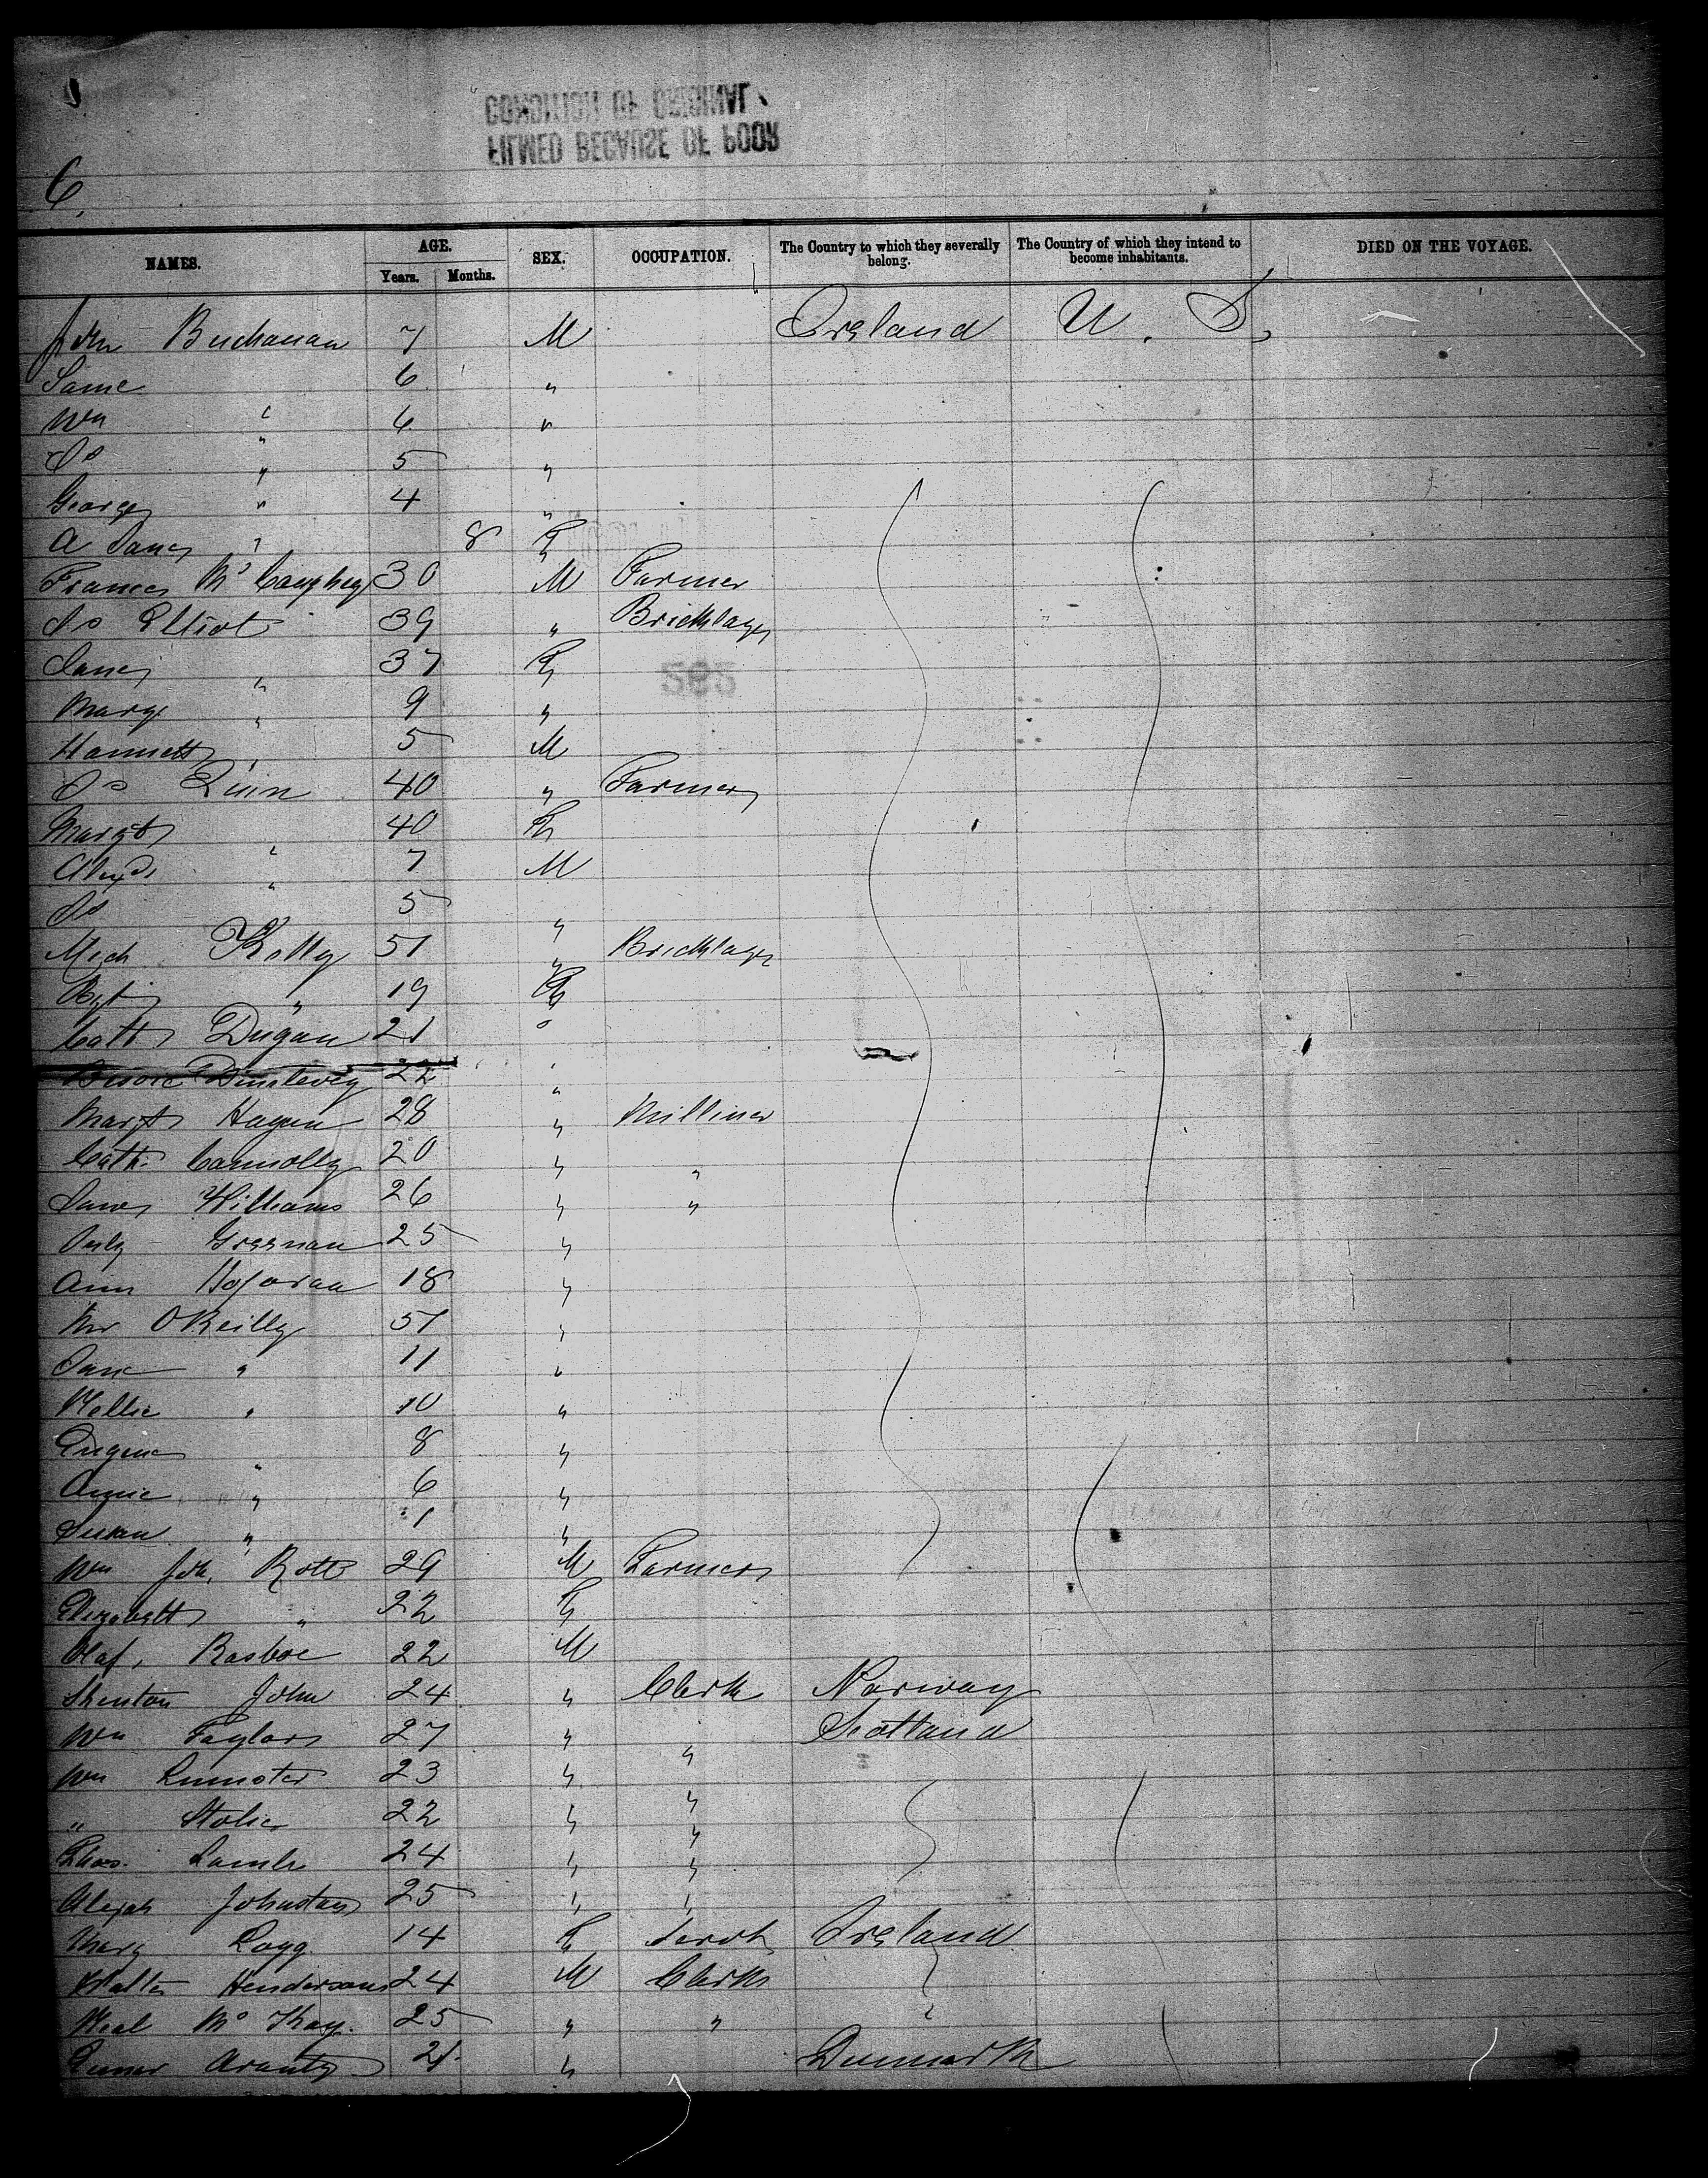 CONDITION OF ORIGINAL
FILMED BECAUSE OF POOR
6
NAMES. AGE. SEX. OCCUPATION. The Country to which they severally belong. The Country of which they intend to become inhabitants. DIED ON THE VOYAGE.
Years. Months.
John Buchanan 7 M Ireland U. S.
Same 6 "
Wm " 6 "
Jo " 5 "
George " 4 "
A Jane " 8 F
Frances McCaughey 30 M Farmer
Jo Elliot 39 " Bricklayer
Jane " 37 F
Mary " 9 "
5 M
Jo Quin 40 " Farmer
Margt 40 F
Alexdr " 7 M
Jo " 5 "
Mich Kelly 51 " Bricklayer
" 19 F
Cath Dugan 21 "
22 "
Margt Hagan 28 " Milliner
Cath. Connolly 20 " "
Jane Williams 26 " "
Grennan 25 "
Ann 18 "
Mr O'Reilly 51 "
Jane " 11 "
Nellie " 10 "
Eugene " 8 "
Annie " 6 "
Susan " 1 "
Wm Jon. Rott 29 M Farmer
Elizabeth " 22 F
Olaf. Rasboe 22 M
Shenton John 24 " Clerk Norway
Wm Taylor 27 " " Scotland
Wm 23 " "
" 22 " "
Thos. Lamb 24 " "
Johnston 25 " "
Mary Logg 14 F Servt Ireland
Walter Henderson 24 M Clerk
Neal McKay. 25 " " "
21 " Denmark